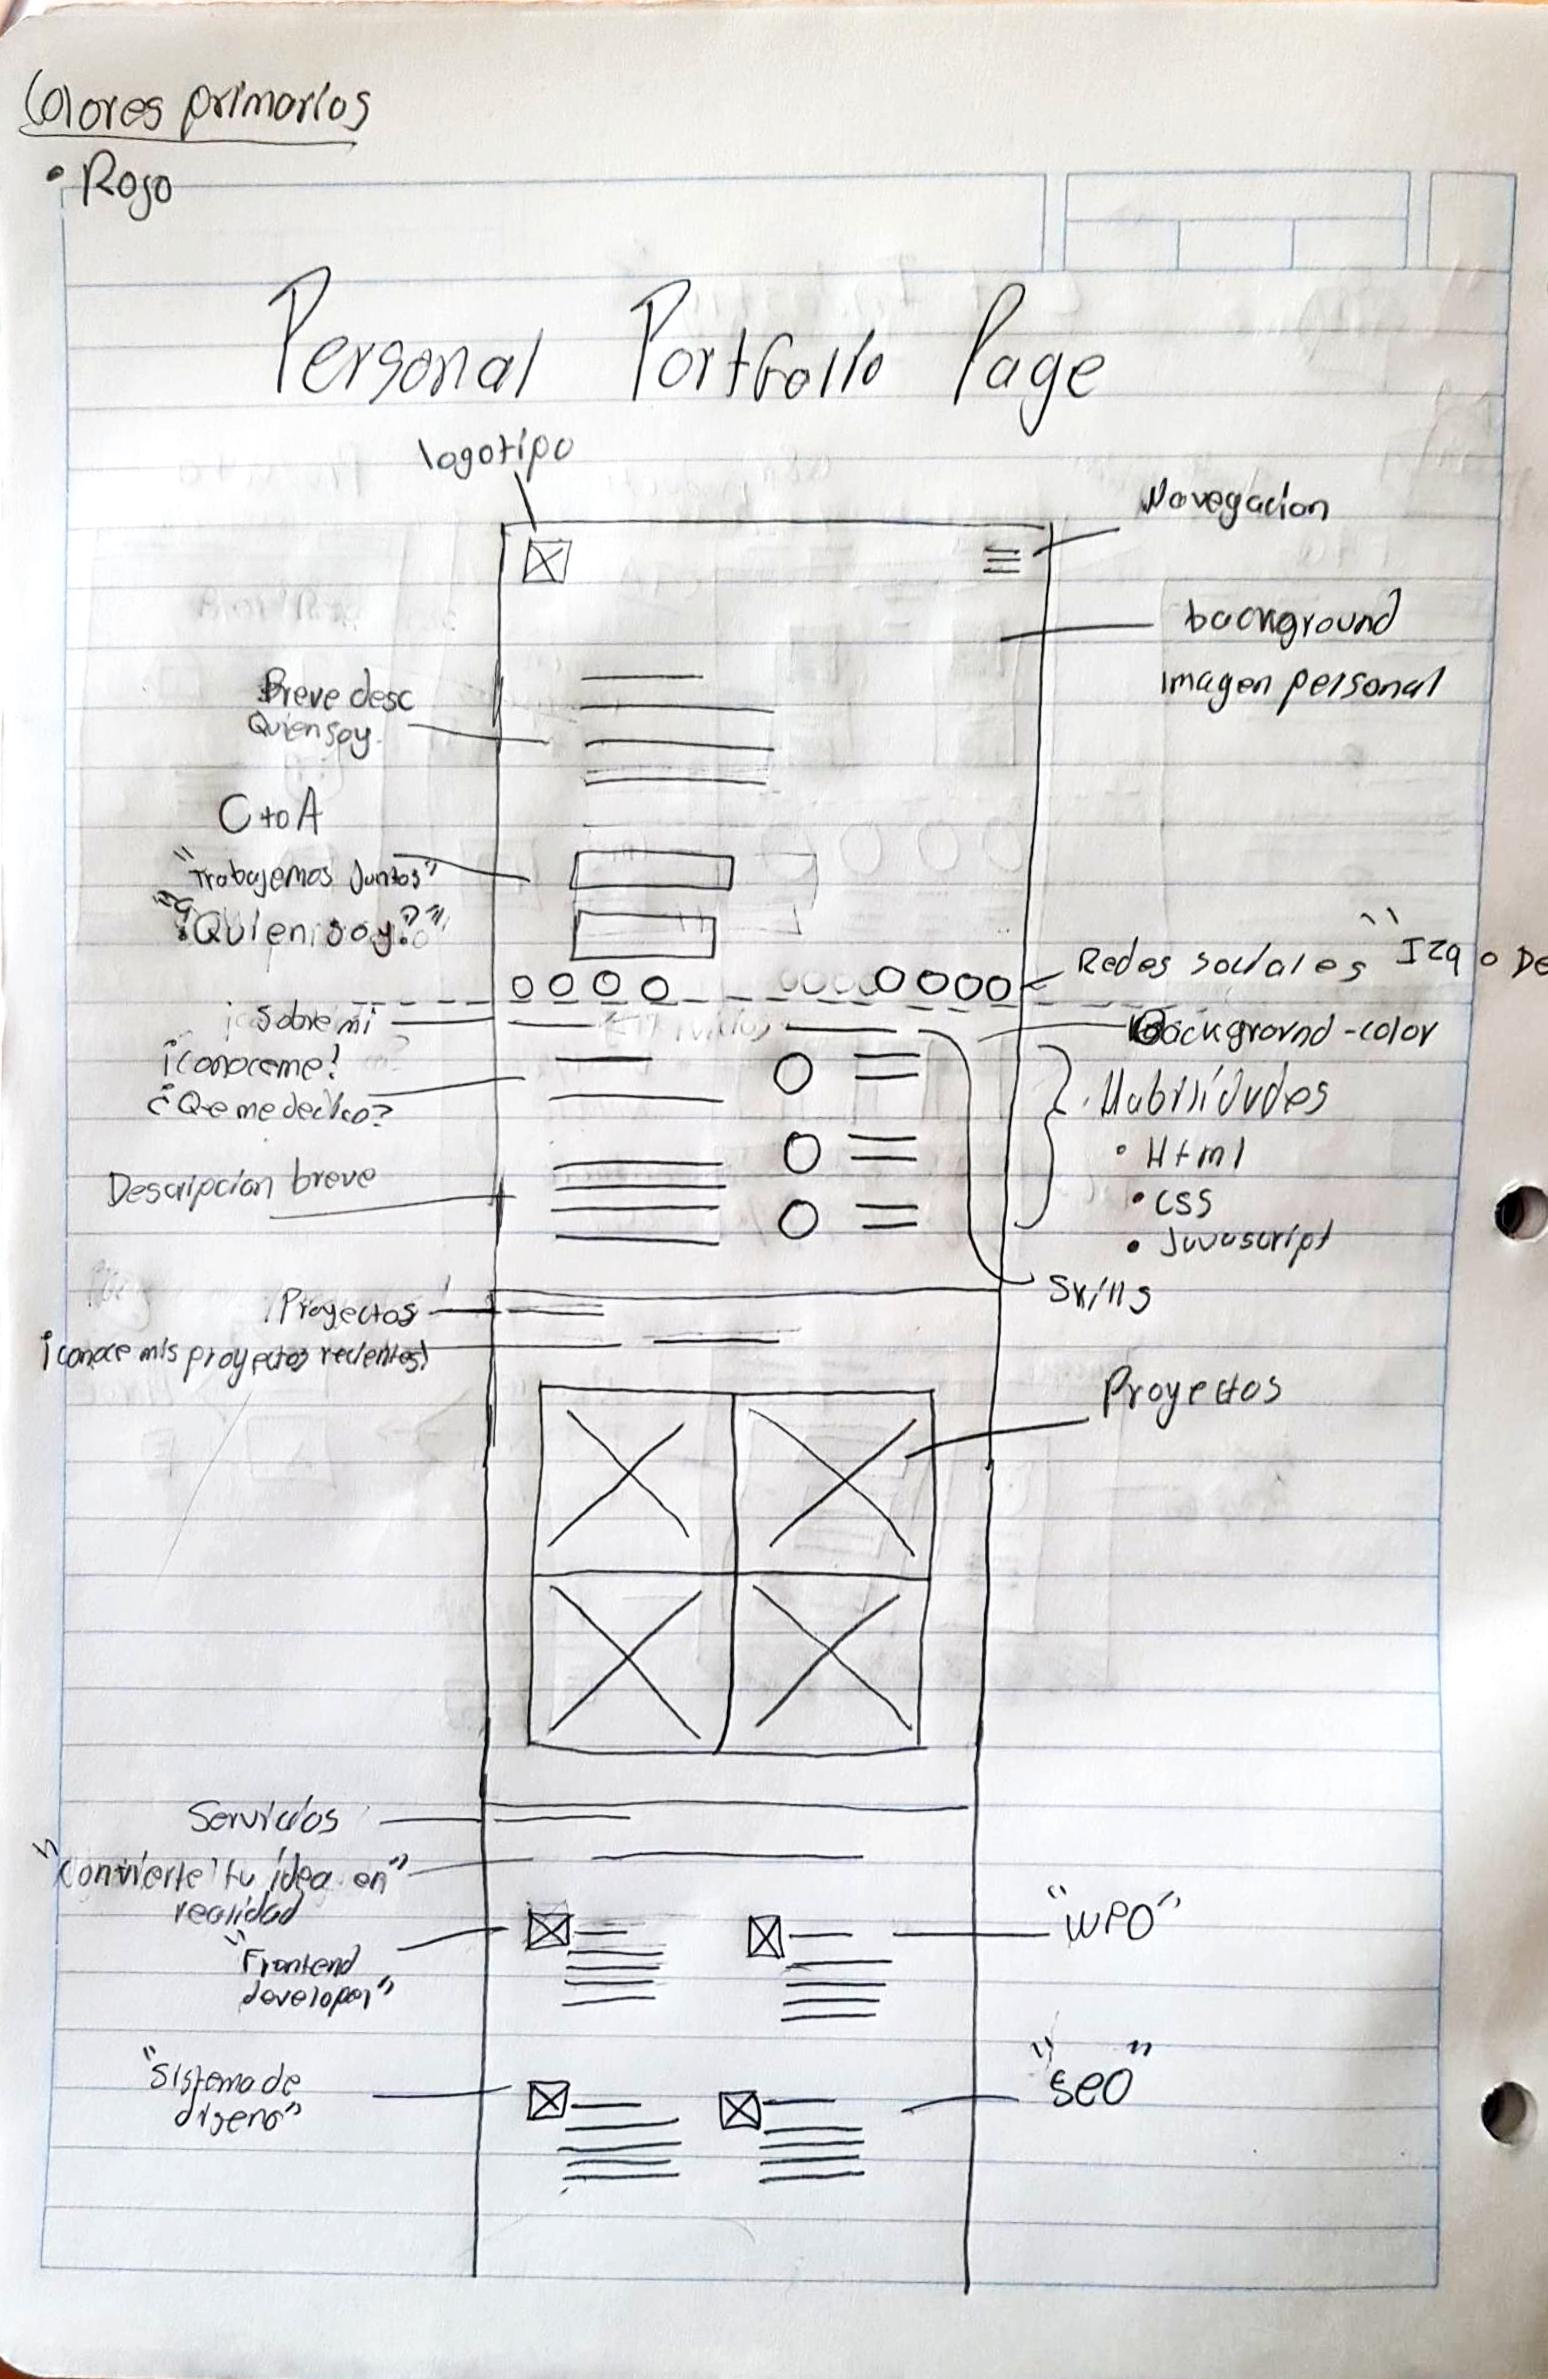 Colores primarios
• Rojo
Personal Portfolio Page
logotipo
Navegacion
background
imagen personal
Breve desc
Quien soy
C to A
"Trabajemos Juntos"
"¿Quien soy?"
Redes sociales "Izq o De
Sobre mi
Background-color
¡conoceme!
¿Que me dedico?
Habilidades
• Html
• CSS
• Javascript
Descripcion breve
Skills
Proyectos
¡conoce mis proyectos recientes!
Proyectos
Servicios
"Convierte tu idea en"
realidad
"Frontend
developer"
"WPO"
"Sistema de
diseno"
"SEO"